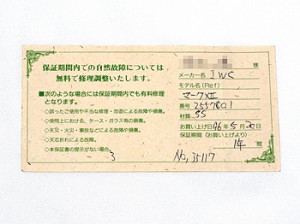 保証期間内での自然故障については
無料で修理調整いたします。
■次のような場合には保証期間内でも有料修理
となります。
◇誤ったご使用や不当な修理・改造による故障や損傷。
◇使用上における、ケース・ガラス等の損傷。
◇天災・火災・事故などによる故障や損傷。
◇天石おれによる故障。
◇本保証書の提示がない場合
3
様
メーカー名 IWC
モデル名(Ref)
マークXII
番号 2557801
材質 SS
お買い上げ日 96年5月20日
保証期間(お買い上げより)
1年間
No, 35117